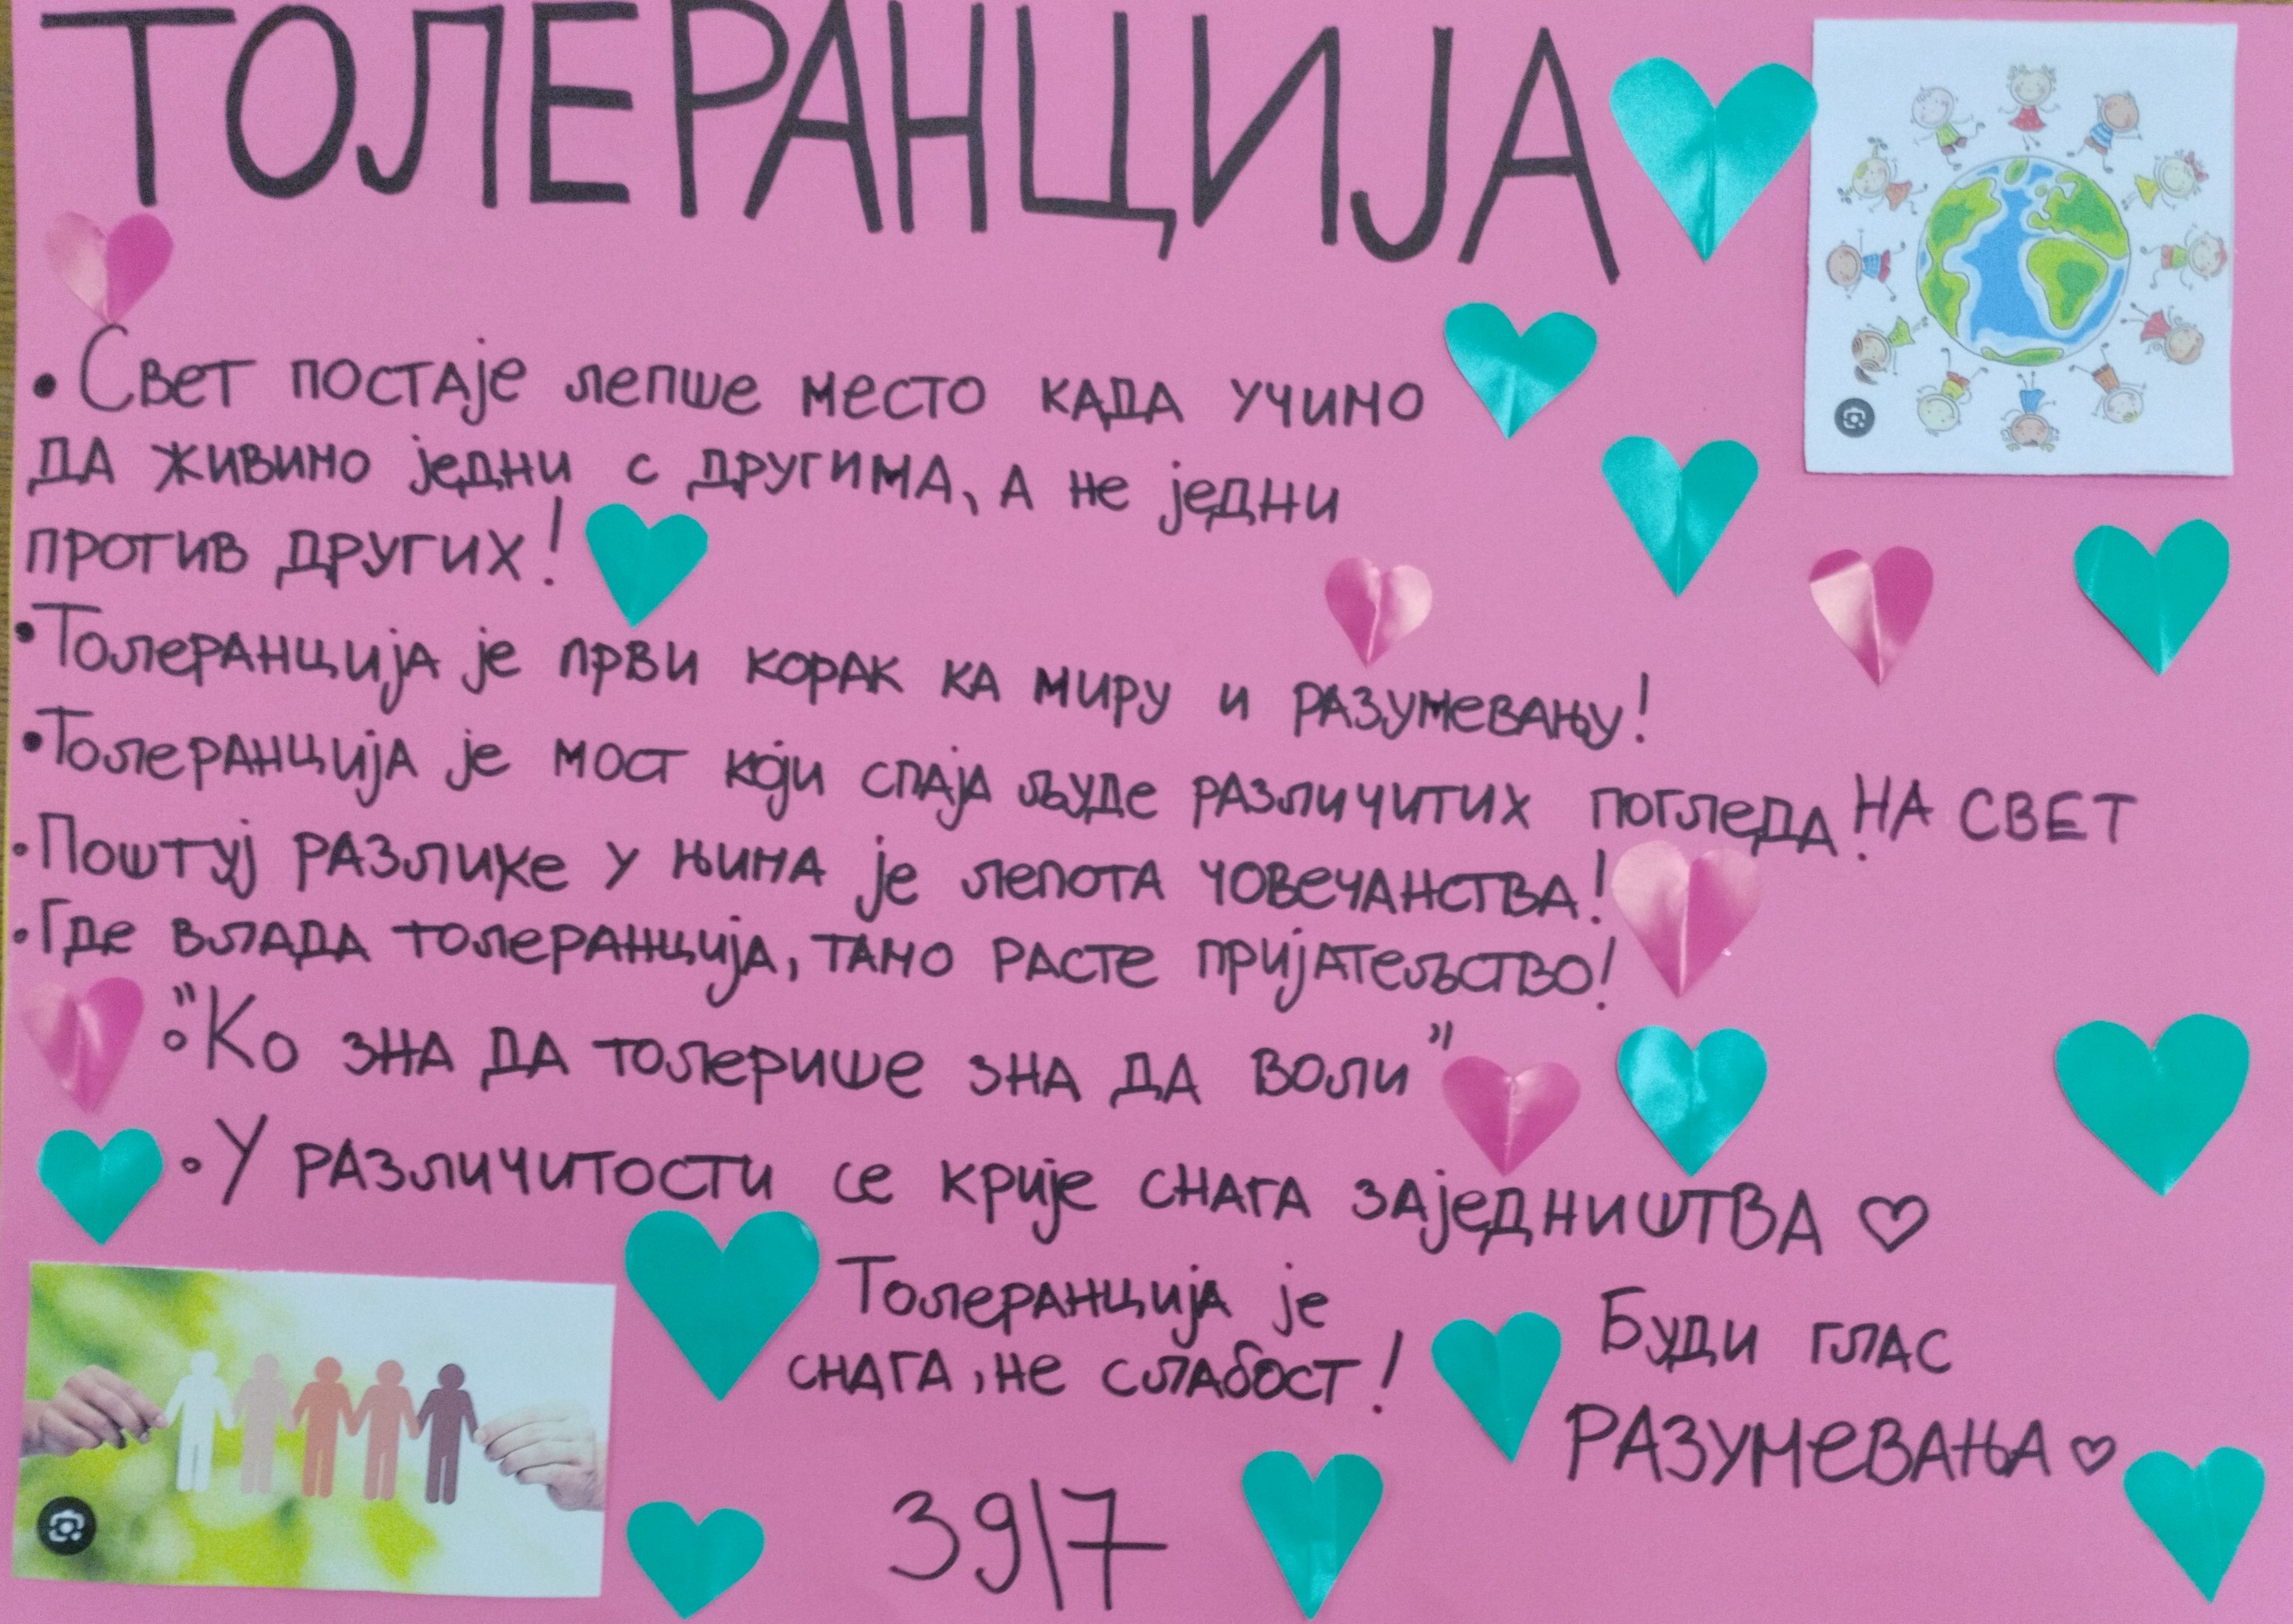 ТОЛЕРАНЦИЈА
• Свет постаје лепше место када учимо
да живимо једни с другима, а не једни
против других!
• Толеранција је први корак ка миру и разумевању!
• Толеранција је мост који спаја људе различитих погледа на свет!
• Поштуј разлике у њима је лепота човечанства!
• Где влада толеранција, тамо расте пријатељство!
• "Ко зна да толерише зна да воли"
• У различитости се крије снага заједништва ♡
Толеранција је
снага, не слабост!
Буди глас
разумевања ♡
39\7